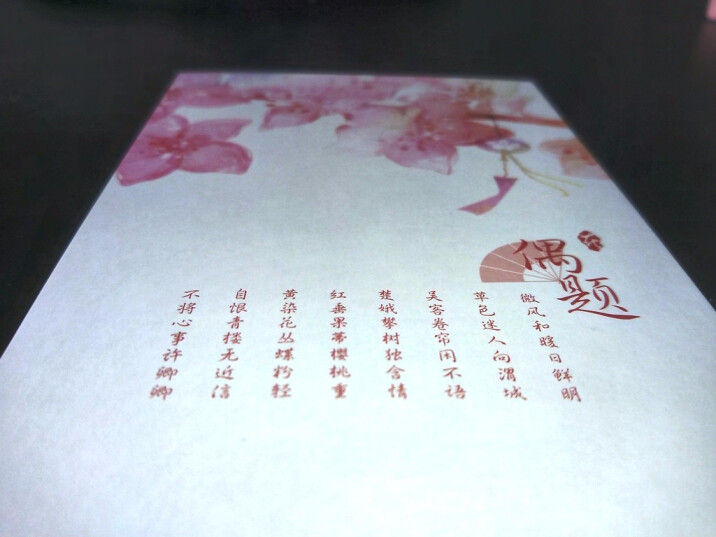 偶题
微风和暖日鲜明
草色迷人向渭城
吴客卷帘闲不语
楚娥攀树独含情
红垂果蒂樱桃重
黄染花丛蝶粉轻
自恨青楼无近信
不将心事许卿卿